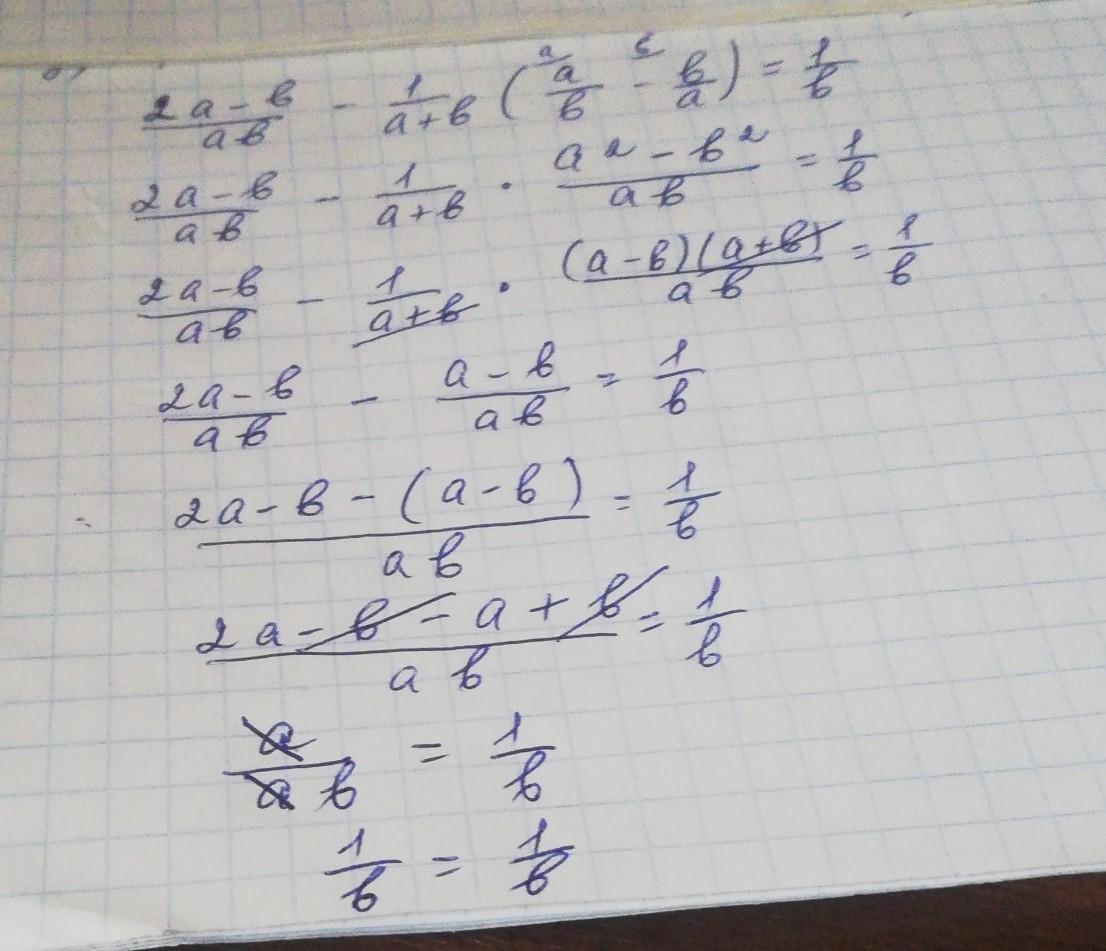 (2a-b)/(ab) - 1/(a+b) (a/b - b/a) = 1/b
(2a-b)/(ab) - 1/(a+b) · (a² - b²)/(ab) = 1/b
(2a-b)/(ab) - 1/(a+b) · ((a-b)(a+b))/(ab) = 1/b
(2a-b)/(ab) - (a-b)/(ab) = 1/b
(2a-b-(a-b))/(ab) = 1/b
(2a-b-a+b)/(ab) = 1/b
a/(ab) = 1/b
1/b = 1/b